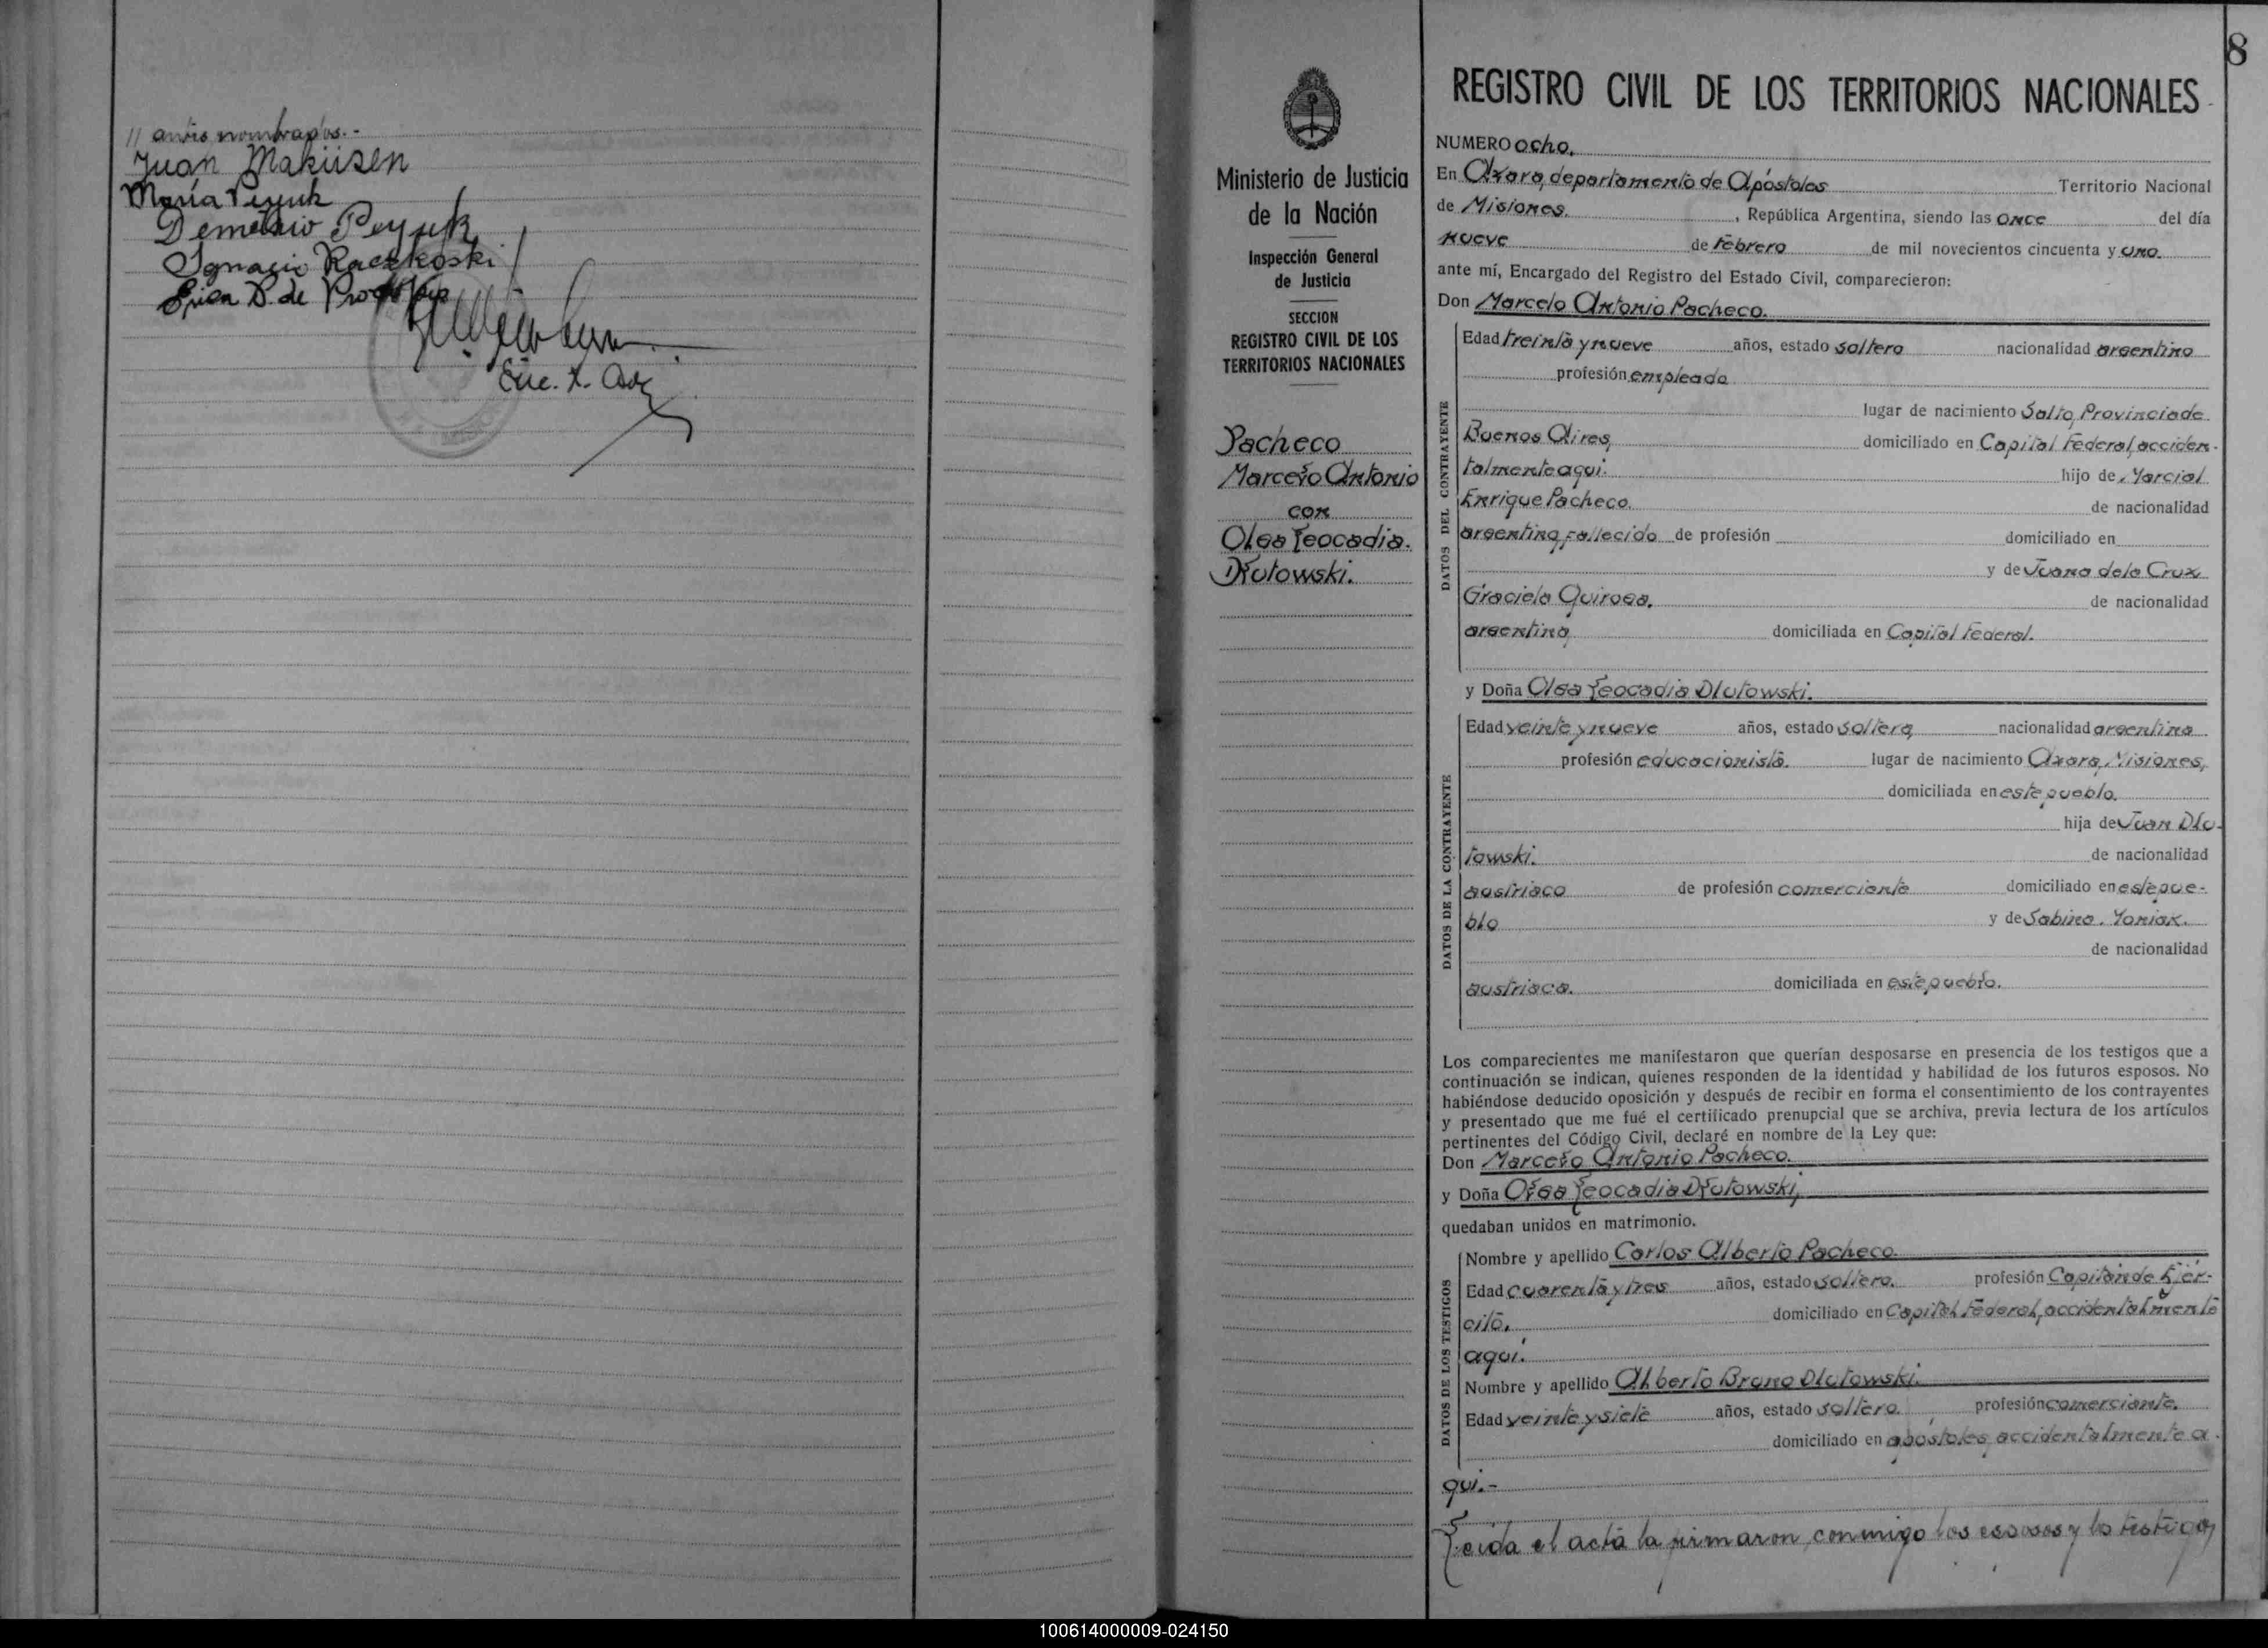 // antes nombrados.-
Juan Makiisen
María Peyuk
Demetrio Peyuk
Ignacio Raczkoski
Erica D. de
Enc. t.
8
Ministerio de Justicia
de la Nación
Inspección General
de Justicia
SECCION
REGISTRO CIVIL DE LOS
TERRITORIOS NACIONALES
Pacheco
Marcelo Antonio
con
Olga Leocadia
Dlutowski.
REGISTRO CIVIL DE LOS TERRITORIOS NACIONALES
NUMERO ocho.
En Azara, departamento de Apóstoles Territorio Nacional
de Misiones. , República Argentina, siendo las once del día
nueve de febrero de mil novecientos cincuenta y uno.
ante mí, Encargado del Registro del Estado Civil, comparecieron:
Don Marcelo Antonio Pacheco.
DATOS DEL CONTRAYENTE
Edad treinta y nueve años, estado soltero nacionalidad argentino
profesión empleado
lugar de nacimiento Salto, Provincia de
Buenos Aires, domiciliado en Capital Federal, acciden-
talmente aquí. hijo de Marcial
Enrique Pacheco. de nacionalidad
argentino, fallecido de profesión domiciliado en
y de Juana de la Cruz
Graciela Quiroga. de nacionalidad
argentina domiciliada en Capital Federal.
y Doña Olga Leocadia Dlutowski.
DATOS DE LA CONTRAYENTE
Edad veinte y nueve años, estado soltera nacionalidad argentina
profesión educacionista. lugar de nacimiento Azara, Misiones,
domiciliada en este pueblo.
hija de Juan Dlu-
towski. de nacionalidad
austriaco de profesión comerciante domiciliado en este pue-
blo y de Sabina Maniak.
de nacionalidad
austriaca. domiciliada en este pueblo.
Los comparecientes me manifestaron que querían desposarse en presencia de los testigos que a
continuación se indican, quienes responden de la identidad y habilidad de los futuros esposos. No
habiéndose deducido oposición y después de recibir en forma el consentimiento de los contrayentes
y presentado que me fué el certificado prenupcial que se archiva, previa lectura de los artículos
pertinentes del Código Civil, declaré en nombre de la Ley que:
Don Marcelo Antonio Pacheco.
y Doña Olga Leocadia Dlutowski,
quedaban unidos en matrimonio.
DATOS DE LOS TESTIGOS
Nombre y apellido Carlos Alberto Pacheco.
Edad cuarenta y tres años, estado soltero. profesión Capitán de Ejér-
cito. domiciliado en Capital Federal, accidentalmente
aquí.
Nombre y apellido Alberto Bruno Dlutowski.
Edad veinte y siete años, estado soltero. profesión comerciante.
domiciliado en apóstoles accidentalmente a-
qui.-
Leída el acta la firmaron conmigo los esposos y lo testigos
100614000009-024150